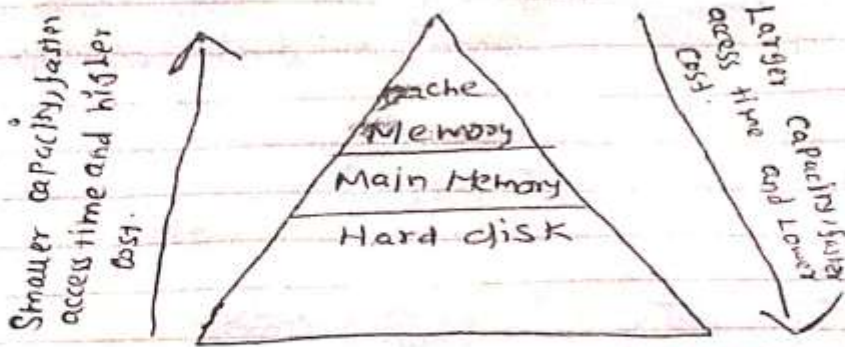 Smaller capacity, faster
access time and higher
cost.
Cache
Memory
Main Memory
Hard disk
Larger capacity, faster
access time and Lower
cost.